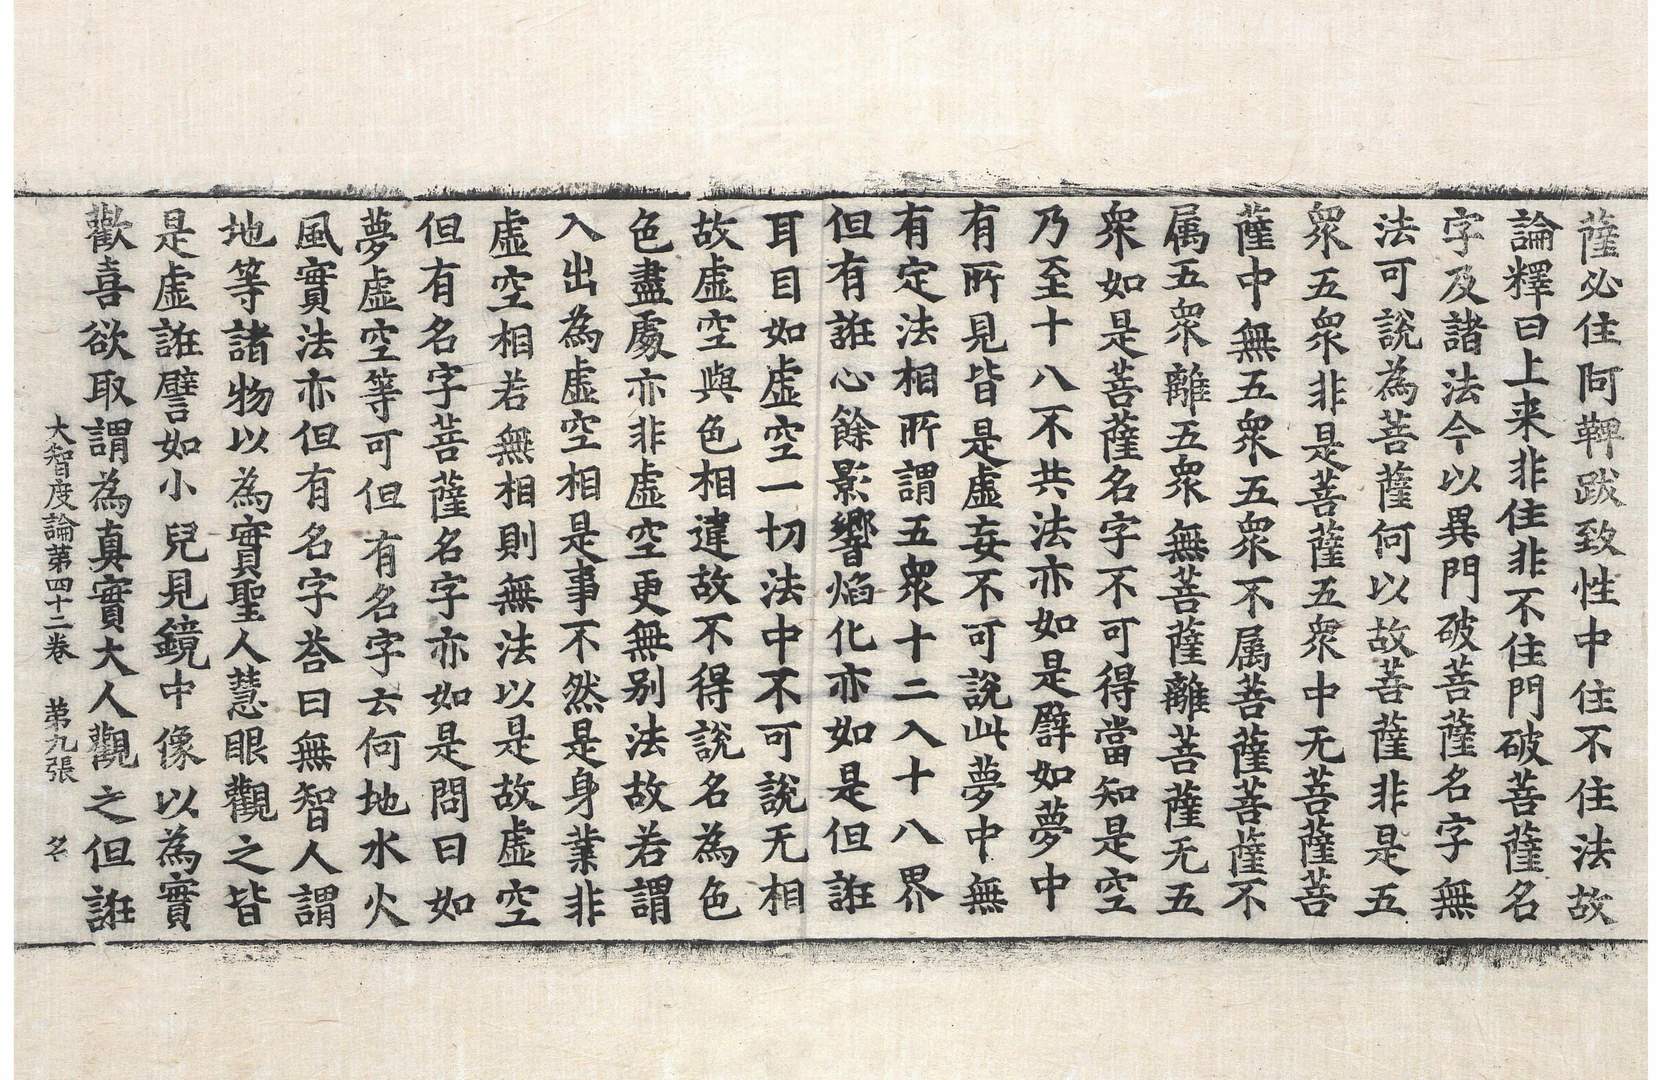 薩必住阿鞞跋致性中住不住法故
論釋曰上来非住非不住門破菩薩名
字及諸法今以異門破菩薩名字無
法可說為菩薩何以故菩薩非是五
衆五衆非是菩薩五衆中无菩薩菩
薩中無五衆五衆不属菩薩菩薩不
属五衆離五衆無菩薩離菩薩无五
衆如是菩薩名字不可得當知是空
乃至十八不共法亦如是譬如夢中
有所見皆是虛妄不可說此夢中無
有定法相所謂五衆十二入十八界
但有誑心餘影響焰化亦如是但誑
耳目如虛空一切法中不可說无相
故虛空與色相違故不得說名為色
色盡處亦非虛空更無別法故若謂
入出為虛空相是事不然是身業非
虛空相若無相則無法以是故虛空
但有名字菩薩名字亦如是問曰如
夢虛空等可但有名字云何地水火
風實法亦但有名字荅曰無智人謂
地等諸物以為實聖人慧眼觀之皆
是虛誑譬如小兒見鏡中像以為實
歡喜欲取謂為真實大人觀之但誑
大智度論第四十二卷　第九張　名